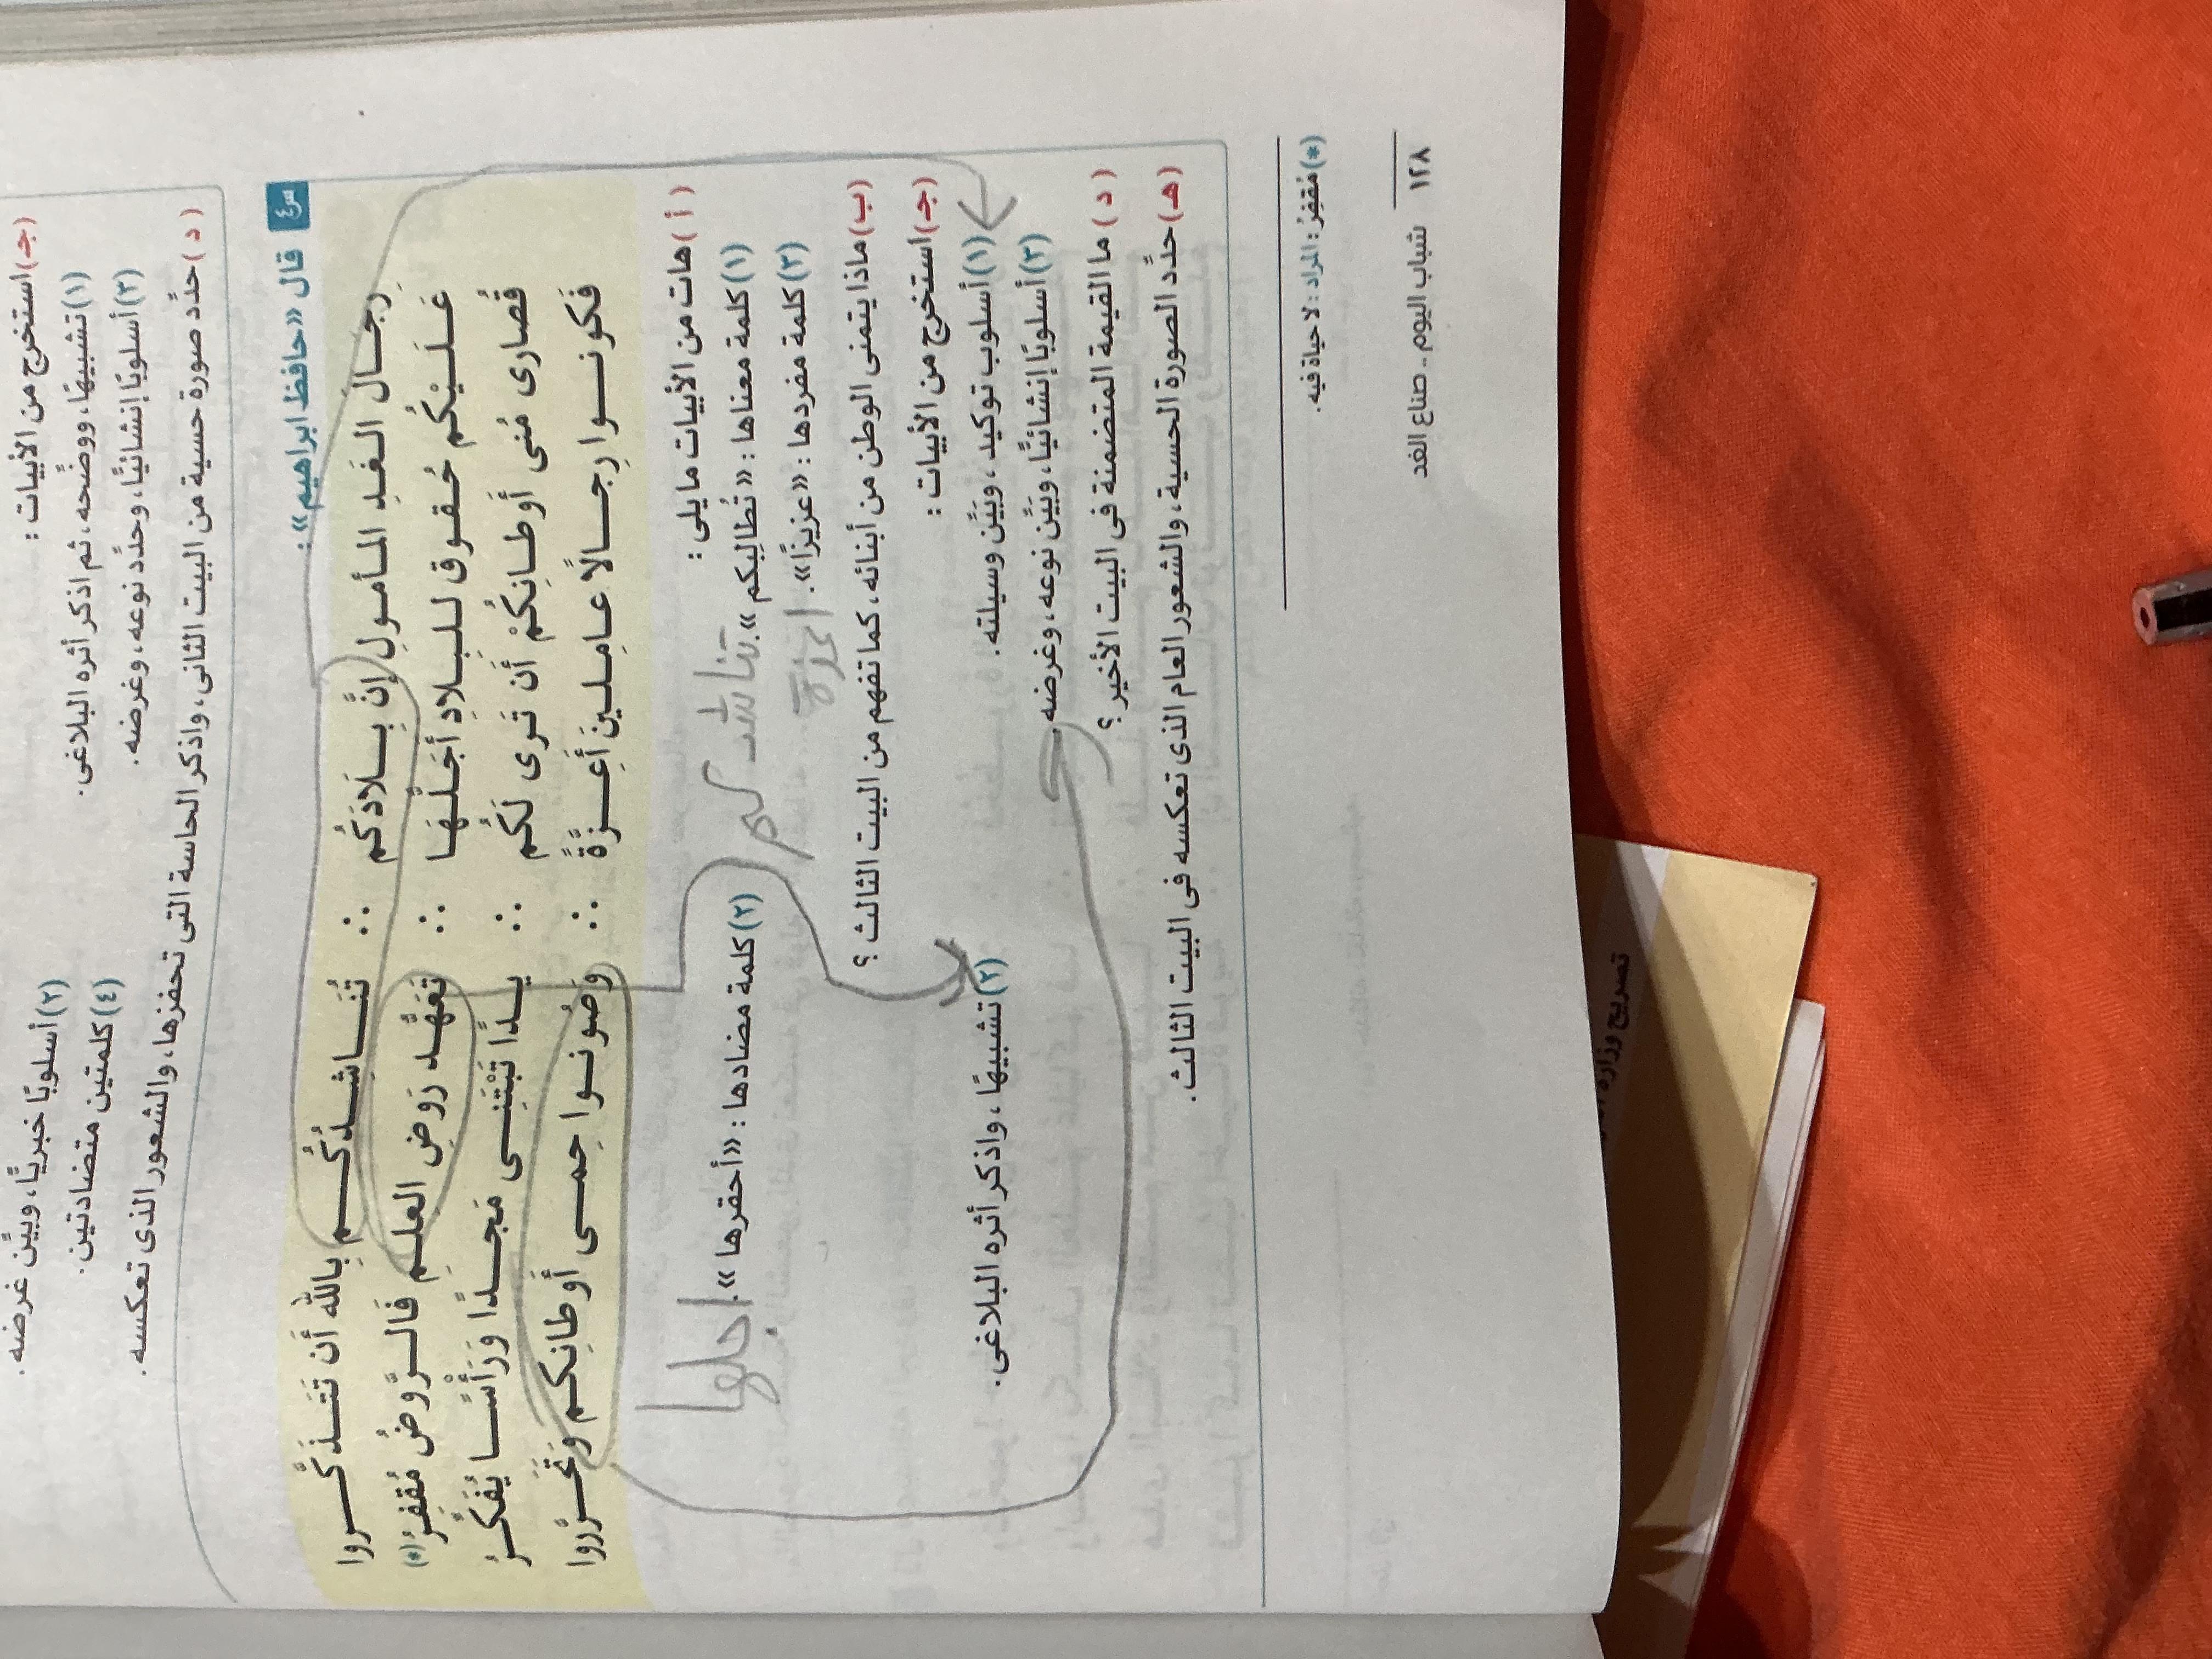 (جـ) استخرج من الأبيات :
(١) تشبيهًا، ووضِّحه، ثم اذكر أثره البلاغى. (٢) أسلوبًا خبريًّا، وبيِّن غرضه.
(٣) أسلوبًا إنشائيًّا، وحدِّد نوعه، وغرضه. (٤) كلمتين متضادتين.
(د) حدِّد صورة حسية من البيت الثانى، واذكر الحاسة التى تحفزها، والشعور الذى تعكسه.
س٤ قال «حافظ إبراهيم»:
رِجـــال الـغَـدِ المـأمـولِ إِنَّ بِـــلَادَكُم ∴ تُنَـــاشِـــدُكُـــم بِاللهِ أَن تَتَـــذَكَّـــروا
عَـلَـيْكُم حُـقـوق لـلـبِـلادِ أَجَـلُّـهَـا ∴ تَعَهُّـد رَوضِ العِلـمِ فَالـرَّوضُ مُقفِرُ(*)
قُصارى مُنى أَوطـانِكُمْ أَن تَرى لَكُم ∴ يَـــدًا تَبْتَنِـــى مَجـــدًا وَرَأْسًـــا يُفَكِّـــرُ
فَكونـــوا رِجـــالًا عـامِـلـينَ أَعِـــزَّةً ∴ وَصُونـــوا حِمـــى أَوطانِكـم وَتَحَـــرَّروا
(أ) هات من الأبيات ما يلى :
(١) كلمة معناها : «تُطالِبكم». تناشدكم (٢) كلمة مضادها : «أحقرها». اجلها
(٣) كلمة مفردها : «عزيزًا». اعزة
(ب) ماذا يتمنى الوطن من أبنائه، كما تفهم من البيت الثالث ؟
(جـ) استخرج من الأبيات :
(١) أسلوب توكيد، وبَيِّن وسيلته. (٢) تشبيهًا، واذكر أثره البلاغى.
(٣) أسلوبًا إنشائيًّا، وبَيِّن نوعه، وغرضه.
(د) ما القيمة المتضمنة فى البيت الأخير ؟
(هـ) حدِّد الصورة الحسية، والشعور العام الذى تعكسه فى البيت الثالث.
(*) مُقفِرُ : المراد : لا حياة فيه.
١٢٨ شباب اليوم .. صناع الغد
تصريح وزارة